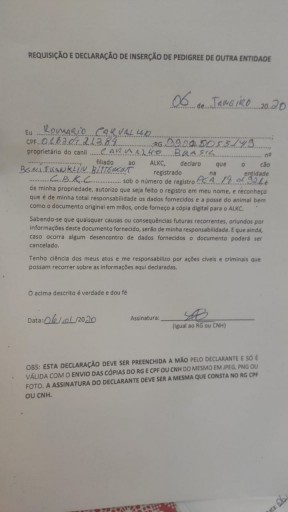 REQUISIÇÃO E DECLARAÇÃO DE INSERÇÃO DE PEDIGREE DE OUTRA ENTIDADE
06 de JANEIRO 2020
Eu ROMARIO CARVALHO
proprietário do canil CARVALHO BRASIL nº
filiado ao ALKC, declaro que o cão
registrado na entidade
CBKC sob o número de registro
de minha propriedade, autorizo que seja feito o registro em meu nome, e reconheço
que é de minha total responsabilidade os dados fornecidos e a posse do animal bem
como o documento original em mãos, onde forneço a cópia digital para o ALKC.
Sabendo-se que quaisquer causas ou consequências futuras recorrentes, oriundos por
informações deste documento fornecido, serão de minha responsabilidade. E que ainda,
caso ocorra algum desencontro de dados fornecidos o documento poderá ser
cancelado.
Tenho ciência dos meus atos e me responsabilizo por ações cíveis e criminais que
possam recorrer sobre as informações aqui declaradas.
O acima descrito é verdade e dou fé
Data: 06/01/2020 Assinatura:
(Igual ao RG ou CNH)
OBS: ESTA DECLARAÇÃO DEVE SER PREENCHIDA A MÃO PELO DECLARANTE E SÓ É
VÁLIDA COM O ENVIO DAS CÓPIAS DO RG E CPF OU CNH DO MESMO EM JPEG, PNG OU
FOTO. A ASSINATURA DO DECLARANTE DEVE SER A MESMA QUE CONSTA NO RG CPF
OU CNH.